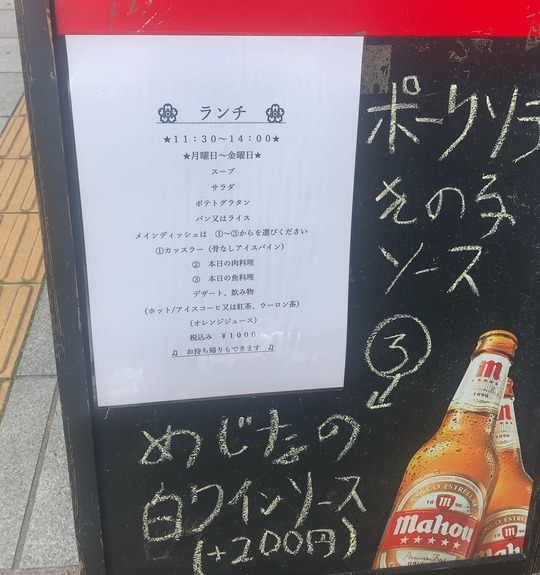 ランチ
★11：30～14：00★
★月曜日～金曜日★
スープ
サラダ
ポテトグラタン
パン又はライス
メインディッシュは ①～③からを選びください
①カッスラー（骨なしアイスバイン）
② 本日の肉料理
③ 本日の魚料理
デザート、飲み物
（ホット/アイスコーヒ又は紅茶、ウーロン茶）
（オレンジジュース）
税込み ￥1000
♫ お持ち帰りもできます ♫
ポークソテ
きの子
ソース
③
めじなの
白ワインソース
(+200円)
m
1890
mahou
★★★★★
m
mahou